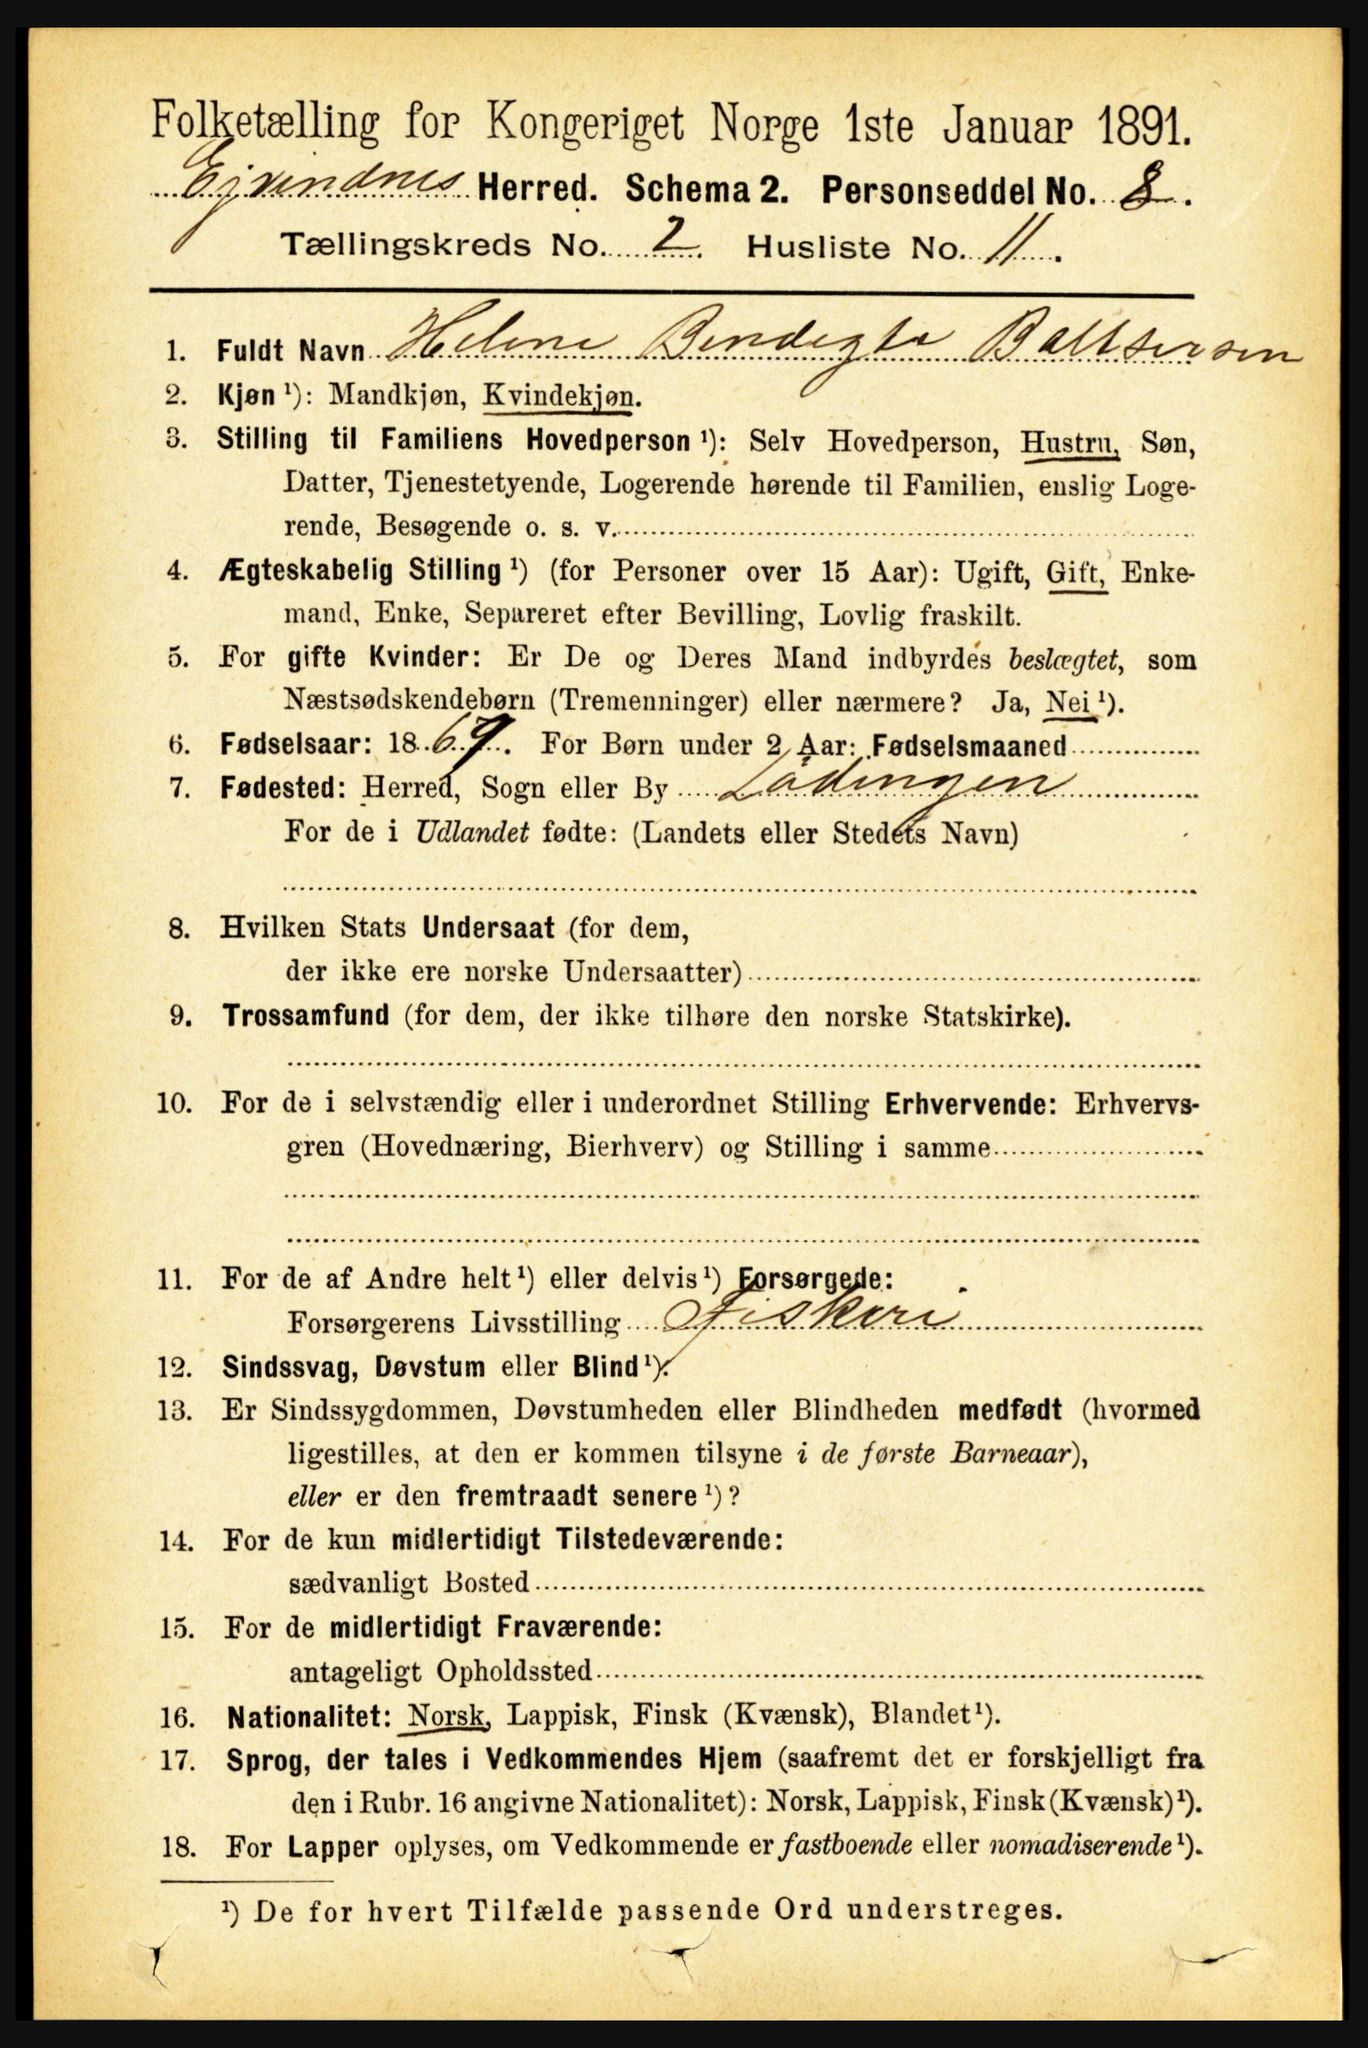 Folketælling for Kongeriget Norge 1ste Januar 1891.
Ejvindnes Herred. Schema 2. Personseddel No. 8.
Tællingskreds No. 2. Husliste No. 11.
1. Fuldt Navn Helene Bendigte Baltsersen
2. Kjøn ¹): Mandkjøn, Kvindekjøn.
3. Stilling til Familiens Hovedperson ¹): Selv Hovedperson, Hustru, Søn,
Datter, Tjenestetyende, Logerende hørende til Familien, enslig Loge-
rende, Besøgende o. s. v.
4. Ægteskabelig Stilling ¹) (for Personer over 15 Aar): Ugift, Gift, Enke-
mand, Enke, Separeret efter Bevilling, Lovlig fraskilt.
5. For gifte Kvinder: Er De og Deres Mand indbyrdes beslægtet, som
Næstsødskendebørn (Tremenninger) eller nærmere? Ja, Nei ¹).
6. Fødselsaar: 1869. For Børn under 2 Aar: Fødselsmaaned
7. Fødested: Herred, Sogn eller By Lödingen
For de i Udlandet fødte: (Landets eller Stedets Navn)
8. Hvilken Stats Undersaat (for dem,
der ikke ere norske Undersaatter)
9. Trossamfund (for dem, der ikke tilhøre den norske Statskirke).
10. For de i selvstændig eller i underordnet Stilling Erhvervende: Erhvervs-
gren (Hovednæring, Bierhverv) og Stilling i samme
11. For de af Andre helt ¹) eller delvis ¹) Forsørgede:
Forsørgerens Livsstilling Fiskeri
12. Sindssvag, Døvstum eller Blind ¹).
13. Er Sindssygdommen, Døvstumheden eller Blindheden medfødt (hvormed
ligestilles, at den er kommen tilsyne i de første Barneaar),
eller er den fremtraadt senere ¹)?
14. For de kun midlertidigt Tilstedeværende:
sædvanligt Bosted
15. For de midlertidigt Fraværende:
antageligt Opholdssted
16. Nationalitet: Norsk, Lappisk, Finsk (Kvænsk), Blandet ¹).
17. Sprog, der tales i Vedkommendes Hjem (saafremt det er forskjelligt fra
den i Rubr. 16 angivne Nationalitet): Norsk, Lappisk, Finsk (Kvænsk) ¹).
18. For Lapper oplyses, om Vedkommende er fastboende eller nomadiserende ¹).
¹) De for hvert Tilfælde passende Ord understreges.